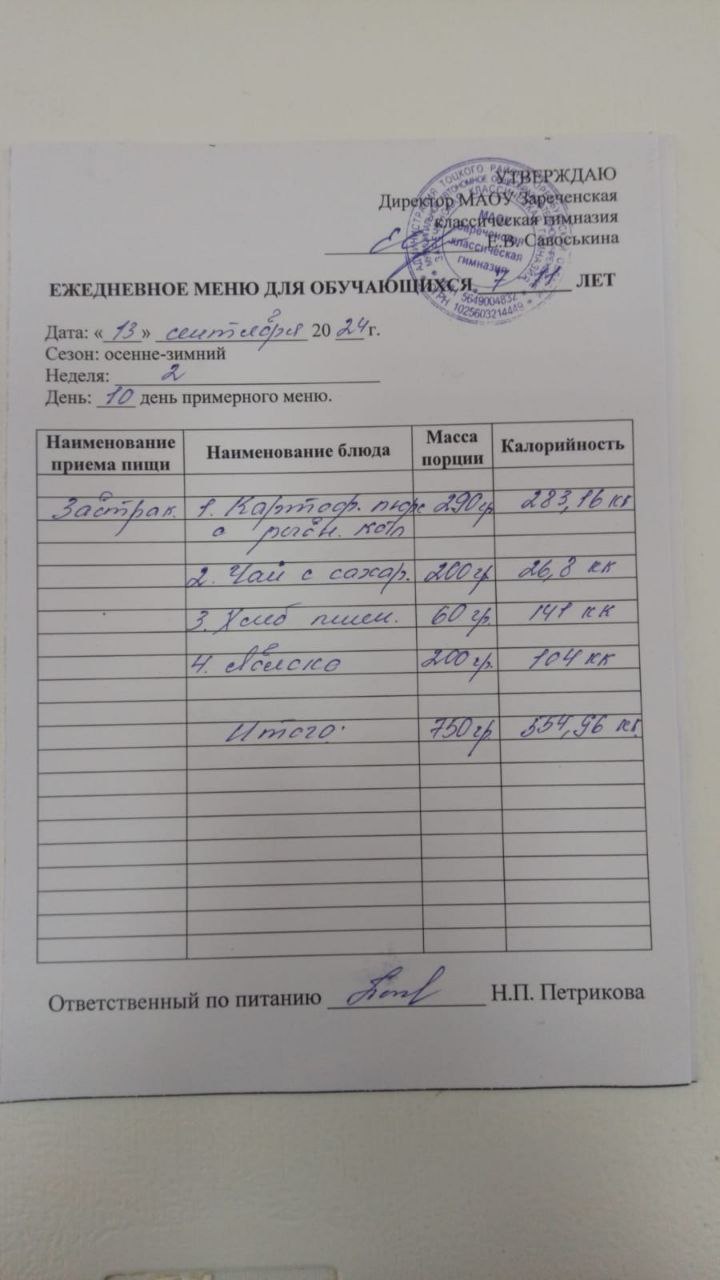 УТВЕРЖДАЮ
Директор МАОУ Зареченская
классическая гимназия
Е.В. Савоськина
МАОУ
Зареченская
классическая
гимназия
5649004832
ОГРН 1025603214449
ЕЖЕДНЕВНОЕ МЕНЮ ДЛЯ ОБУЧАЮЩИХСЯ 7-11 ЛЕТ
Дата: «13» сентября 2024 г.
Сезон: осенне-зимний
Неделя: 2
День: 10 день примерного меню.
Наименование приема пищи Наименование блюда Масса порции Калорийность
Завтрак. 1. Картоф. пюре 290 гр 283,16 кк
с рыбн. котл
2. Чай с сахар. 200 гр 26,8 кк
3. Хлеб пшен. 60 гр. 141 кк
4. Яблоко 200 гр. 104 кк
Итого: 750 гр 554,96 кк
Ответственный по питанию Н.П. Петрикова